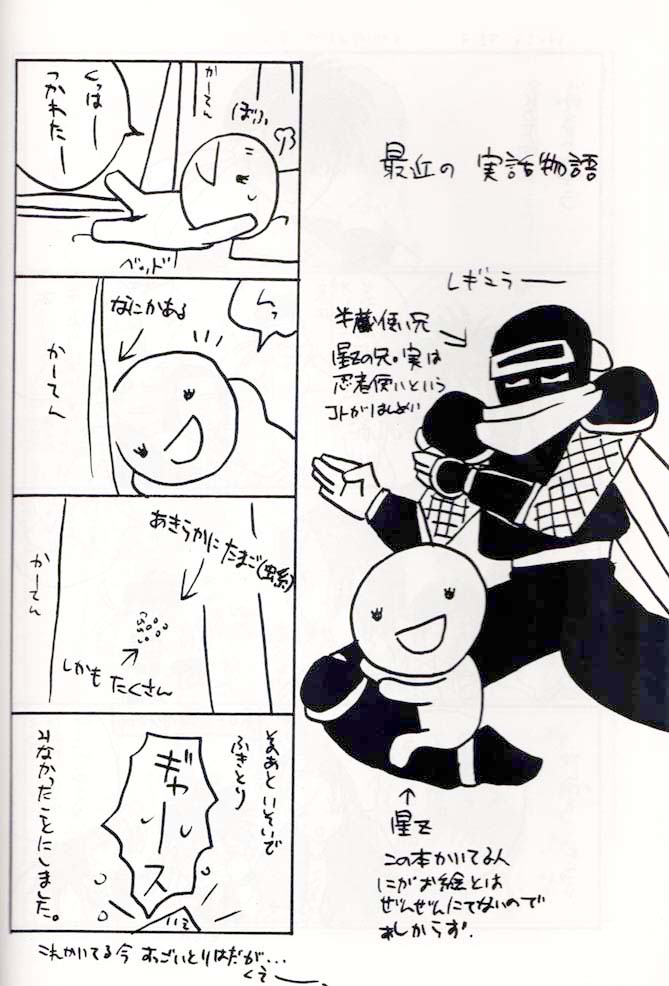 最近の 実話物語
レギュラー
半蔵使い兄
星Zの兄。実は
忍者使いという
コトがはんめい
星Z
この本かいてる人
にがお絵とは
ぜんぜんにてないので
あしからず.
くっはー
つかれたー
かーてん
ぼふ
ベッド
んっ
なにかある
かーてん
あきらかに たまご(虫系)
しかも たくさん
かーてん
そのあといそいで
ふきとり
みなかったことにしました。
ギャース
いえ
これかいてる今 すっごいとりはだが...
くえー